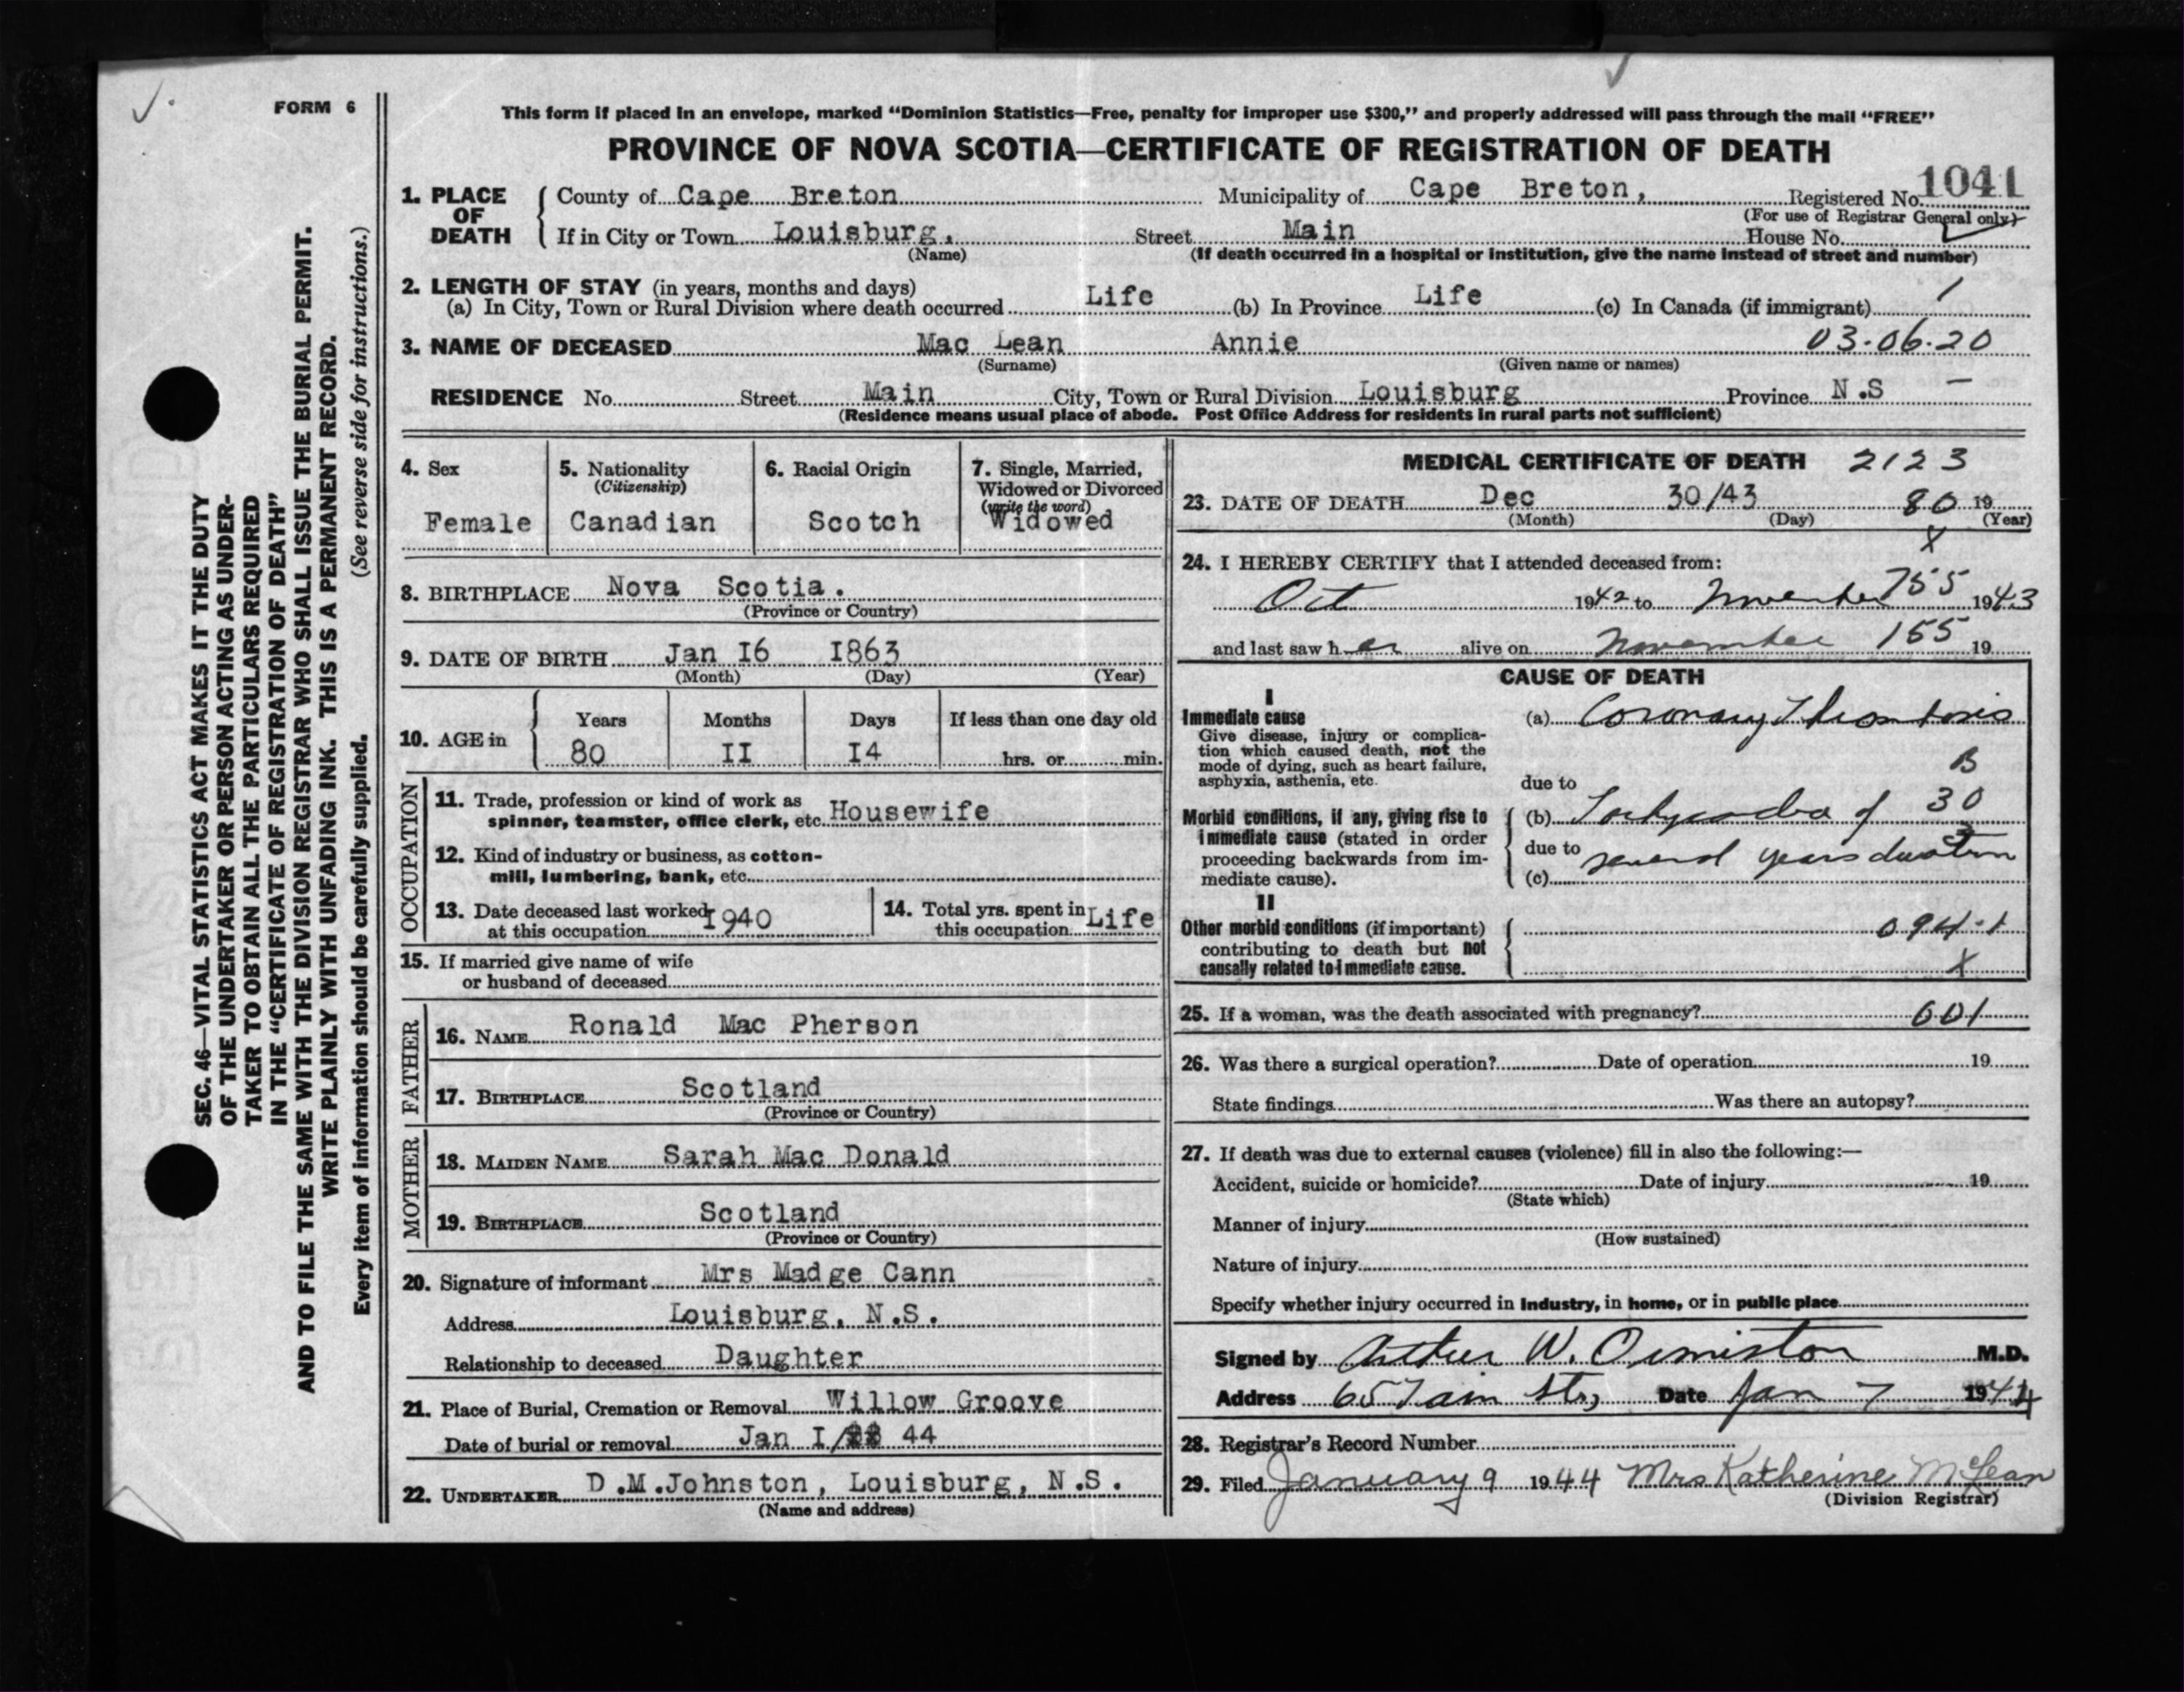 FORM 6
This form if placed in an envelope, marked “Dominion Statistics—Free, penalty for improper use $300,” and properly addressed will pass through the mail “FREE”
PROVINCE OF NOVA SCOTIA—CERTIFICATE OF REGISTRATION OF DEATH
1. PLACE OF DEATH County of Cape Breton Municipality of Cape Breton, Registered No. 1041
(For use of Registrar General only)
If in City or Town Louisburg, Street Main House No.
(Name) (If death occurred in a hospital or institution, give the name instead of street and number)
2. LENGTH OF STAY (in years, months and days)
(a) In City, Town or Rural Division where death occurred Life (b) In Province Life (c) In Canada (if immigrant) 1
3. NAME OF DECEASED Mac Lean Annie 03.06.20
(Surname) (Given name or names)
RESIDENCE No. Street Main City, Town or Rural Division Louisburg Province N.S —
(Residence means usual place of abode. Post Office Address for residents in rural parts not sufficient)
4. Sex
Female
5. Nationality
(Citizenship)
Canadian
6. Racial Origin
Scotch
7. Single, Married,
Widowed or Divorced
(write the word)
Widowed
8. BIRTHPLACE Nova Scotia.
(Province or Country)
9. DATE OF BIRTH Jan I6 I863
(Month) (Day) (Year)
10. AGE in Years Months Days If less than one day old
80 II I4 hrs. or min.
OCCUPATION
11. Trade, profession or kind of work as
spinner, teamster, office clerk, etc. Housewife
12. Kind of industry or business, as cotton-
mill, lumbering, bank, etc.
13. Date deceased last worked
at this occupation I940
14. Total yrs. spent in
this occupation Life
15. If married give name of wife
or husband of deceased
FATHER
16. NAME Ronald Mac Pherson
17. BIRTHPLACE Scotland
(Province or Country)
MOTHER
18. MAIDEN NAME Sarah Mac Donald
19. BIRTHPLACE Scotland
(Province or Country)
20. Signature of informant Mrs Madge Cann
Address Louisburg, N.S.
Relationship to deceased Daughter
21. Place of Burial, Cremation or Removal Willow Groove
Date of burial or removal Jan I/ 44
22. UNDERTAKER D.M.Johnston, Louisburg, N.S.
(Name and address)
MEDICAL CERTIFICATE OF DEATH 2123
23. DATE OF DEATH Dec 30/43 80 19
(Month) (Day) (Year)
X
24. I HEREBY CERTIFY that I attended deceased from:
Oct 1942 to November 1943
and last saw her alive on November 19
CAUSE OF DEATH
I
Immediate cause
Give disease, injury or complica-
tion which caused death, not the
mode of dying, such as heart failure,
asphyxia, asthenia, etc.
(a) Coronary Thrombosis
B
due to
Morbid conditions, if any, giving rise to
immediate cause (stated in order
proceeding backwards from im-
mediate cause).
(b) Tachycardia of 30
due to several years duration
(c)
II
Other morbid conditions (if important)
contributing to death but not
causally related to immediate cause.
094.1
X
25. If a woman, was the death associated with pregnancy? 601
26. Was there a surgical operation? Date of operation 19
State findings Was there an autopsy?
27. If death was due to external causes (violence) fill in also the following:—
Accident, suicide or homicide? Date of injury 19
(State which)
Manner of injury
(How sustained)
Nature of injury
Specify whether injury occurred in industry, in home, or in public place
Signed by Arthur W. Ormiston M.D.
Address Date Jan 7 1944
28. Registrar's Record Number
29. Filed January 9 1944 Mrs Katherine McLean
(Division Registrar)
SEC. 46—VITAL STATISTICS ACT MAKES IT THE DUTY
OF THE UNDERTAKER OR PERSON ACTING AS UNDER-
TAKER TO OBTAIN ALL THE PARTICULARS REQUIRED
IN THE “CERTIFICATE OF REGISTRATION OF DEATH”
AND TO FILE THE SAME WITH THE DIVISION REGISTRAR WHO SHALL ISSUE THE BURIAL PERMIT.
WRITE PLAINLY WITH UNFADING INK. THIS IS A PERMANENT RECORD.
Every item of information should be carefully supplied. (See reverse side for instructions.)